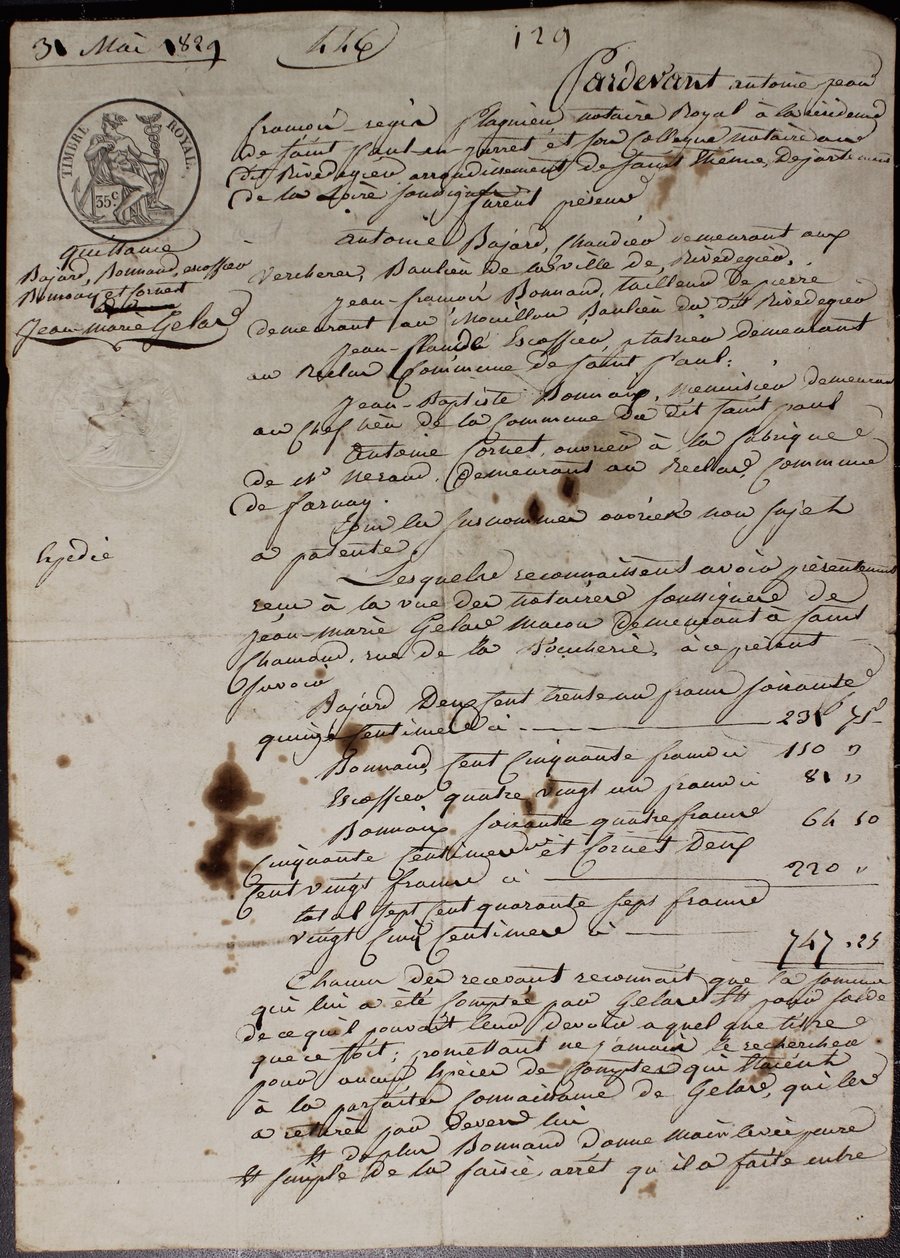 31 Mai 1829
446
129
TIMBRE ROYAL.
35 c
quittance
Bajard, Bonnand, escoffier
Bonnaix et Cornet
Jean-marie Gelas
Expédié
Pardevant antoine jean
françois-regis Plagnieu notaire Royal à la résidence
de saint Paul-en-jarret et son Collegue notaire
dit Rivedegier arrondissement de saint Etienne, Departement
de la Loire soussignés
furent présens
antoine Bajard, Chandier demeurant aux
Vercheres, Banlieu de la ville de Rivedegier.
Jean-françois Bonnand, tailleur De pierre
demeurant au Mouillon Banlieu du dit Rivedegier
Jean-Claude Escoffier, platrier demeurant
au Reclus Commune de saint Paul:
Jean-Baptiste Bonnaix, menuisier demeurant
au Chef lieu de la Commune du dit saint paul
Antoine Cornet, ouvrier à la fabrique
de Mr Neyrand, Demeurant au Reclus, Commune
de farnay.
tous les susnommés ouvriers non sujets
a patente.
Lesquels reconnaissent avoir présentement
recu à la vue des notaires soussignés de
Jean-Marie Gelas Macon demeurant à saint
Chamond, rue de la Boucherie, à ce présent
savoir
Bajard Deux Cent trente un francs soixante
quinze Centimes ci 231 f 75
Bonnand Cent Cinquante francs ci 150 "
Escoffier quatre vingt un francs ci 81 "
Bonnaix soixante quatre francs 64 50
Cinquante Centimes et Cornet Deux
Cent vingt francs ci 220 "
total sept Cent quarante sept francs
vingt Cinq Centimes ci 747 . 25
Chacun des recevant reconnait que la somme
qui lui a été Comptée par Gelas Est pour solde
de ce qu'il pouvait leur devoir a quel que titre
que ce soit; promettant ne jamais le rechercher
pour aucun Espèce de Comptes qui Etaient
à la parfaite Connaissance de Gelas, qui les
a retirés par Devers lui
Et de plus Bonnand donne Mainlevée pure
Et simple de la saisie, arrêt qu'il a faite entre